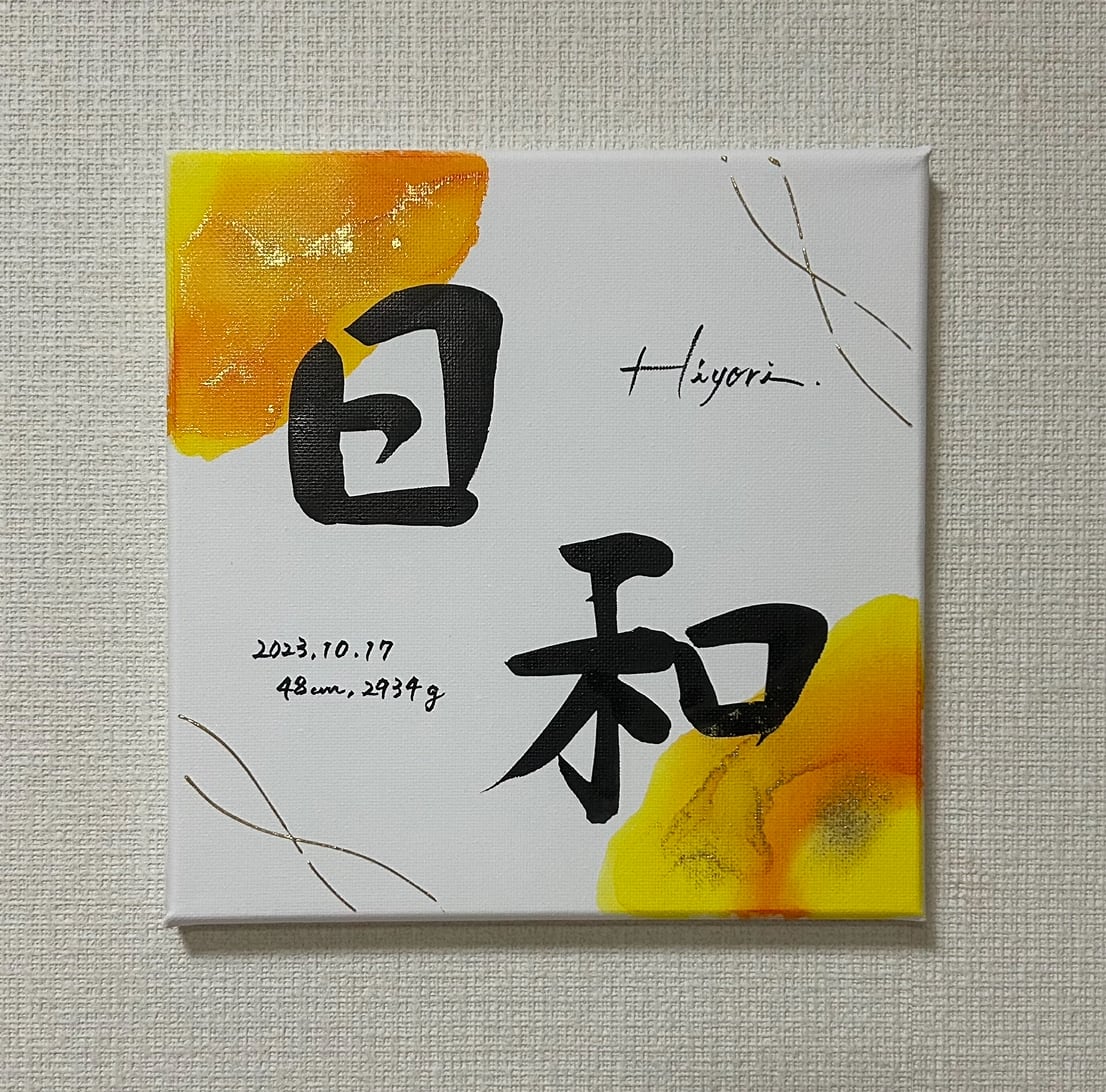 日和
Hiyori.
2023.10.17
48cm, 2934g